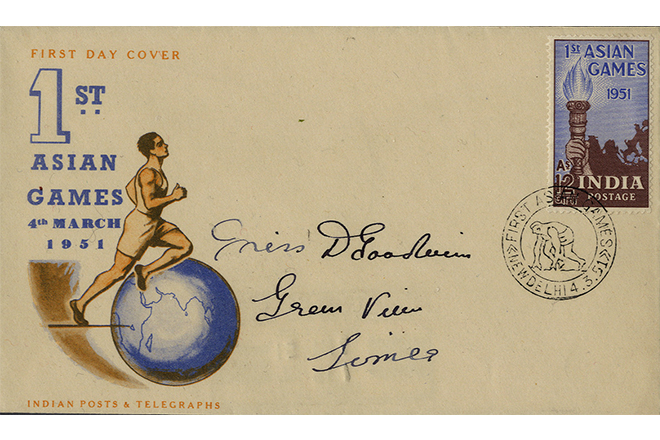 FIRST DAY COVER
1ST
ASIAN
GAMES
4th MARCH
1951
INDIAN POSTS & TELEGRAPHS
1ST ASIAN
GAMES
1951
As
12
INDIA
POSTAGE
FIRST ASIAN GAMES
NEW DELHI 4.3.51
Miss D Goodwin
Green View